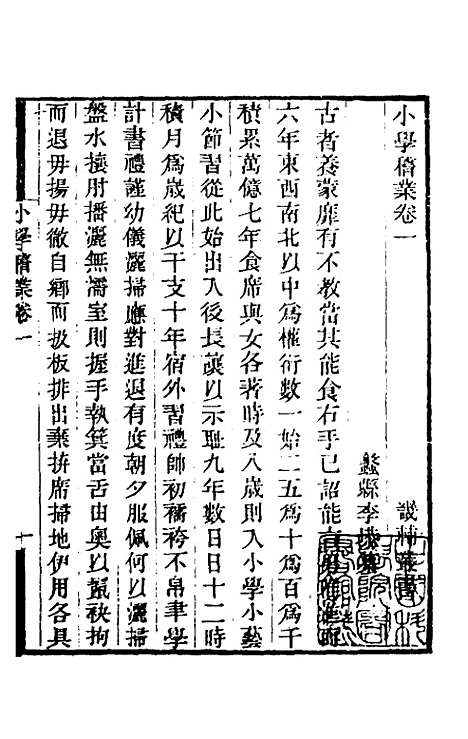 小學稽業卷一
畿輔叢書
蠡縣李塨
古者養蒙靡有不教當其能食右手已詔能
六年東西南北以中爲權衍數一始二五爲十爲百爲千
積累萬億七年食席與女各著時及八歲則入小學小藝
小節習從此始出入後長讓以示恥九年數日日十二時
積月爲歲紀以干支十年宿外習禮師初襦袴不帛聿學
計書禮謹幼儀灑掃應對進退有度朝夕服佩何以灑掃
盤水攘肘播灑無濡室則握手執箕當舌由奧以鬣袂拘
而退毋揚毋徹自鄉而扱板排出棄拚席掃地伊用各具
小學稽業卷一